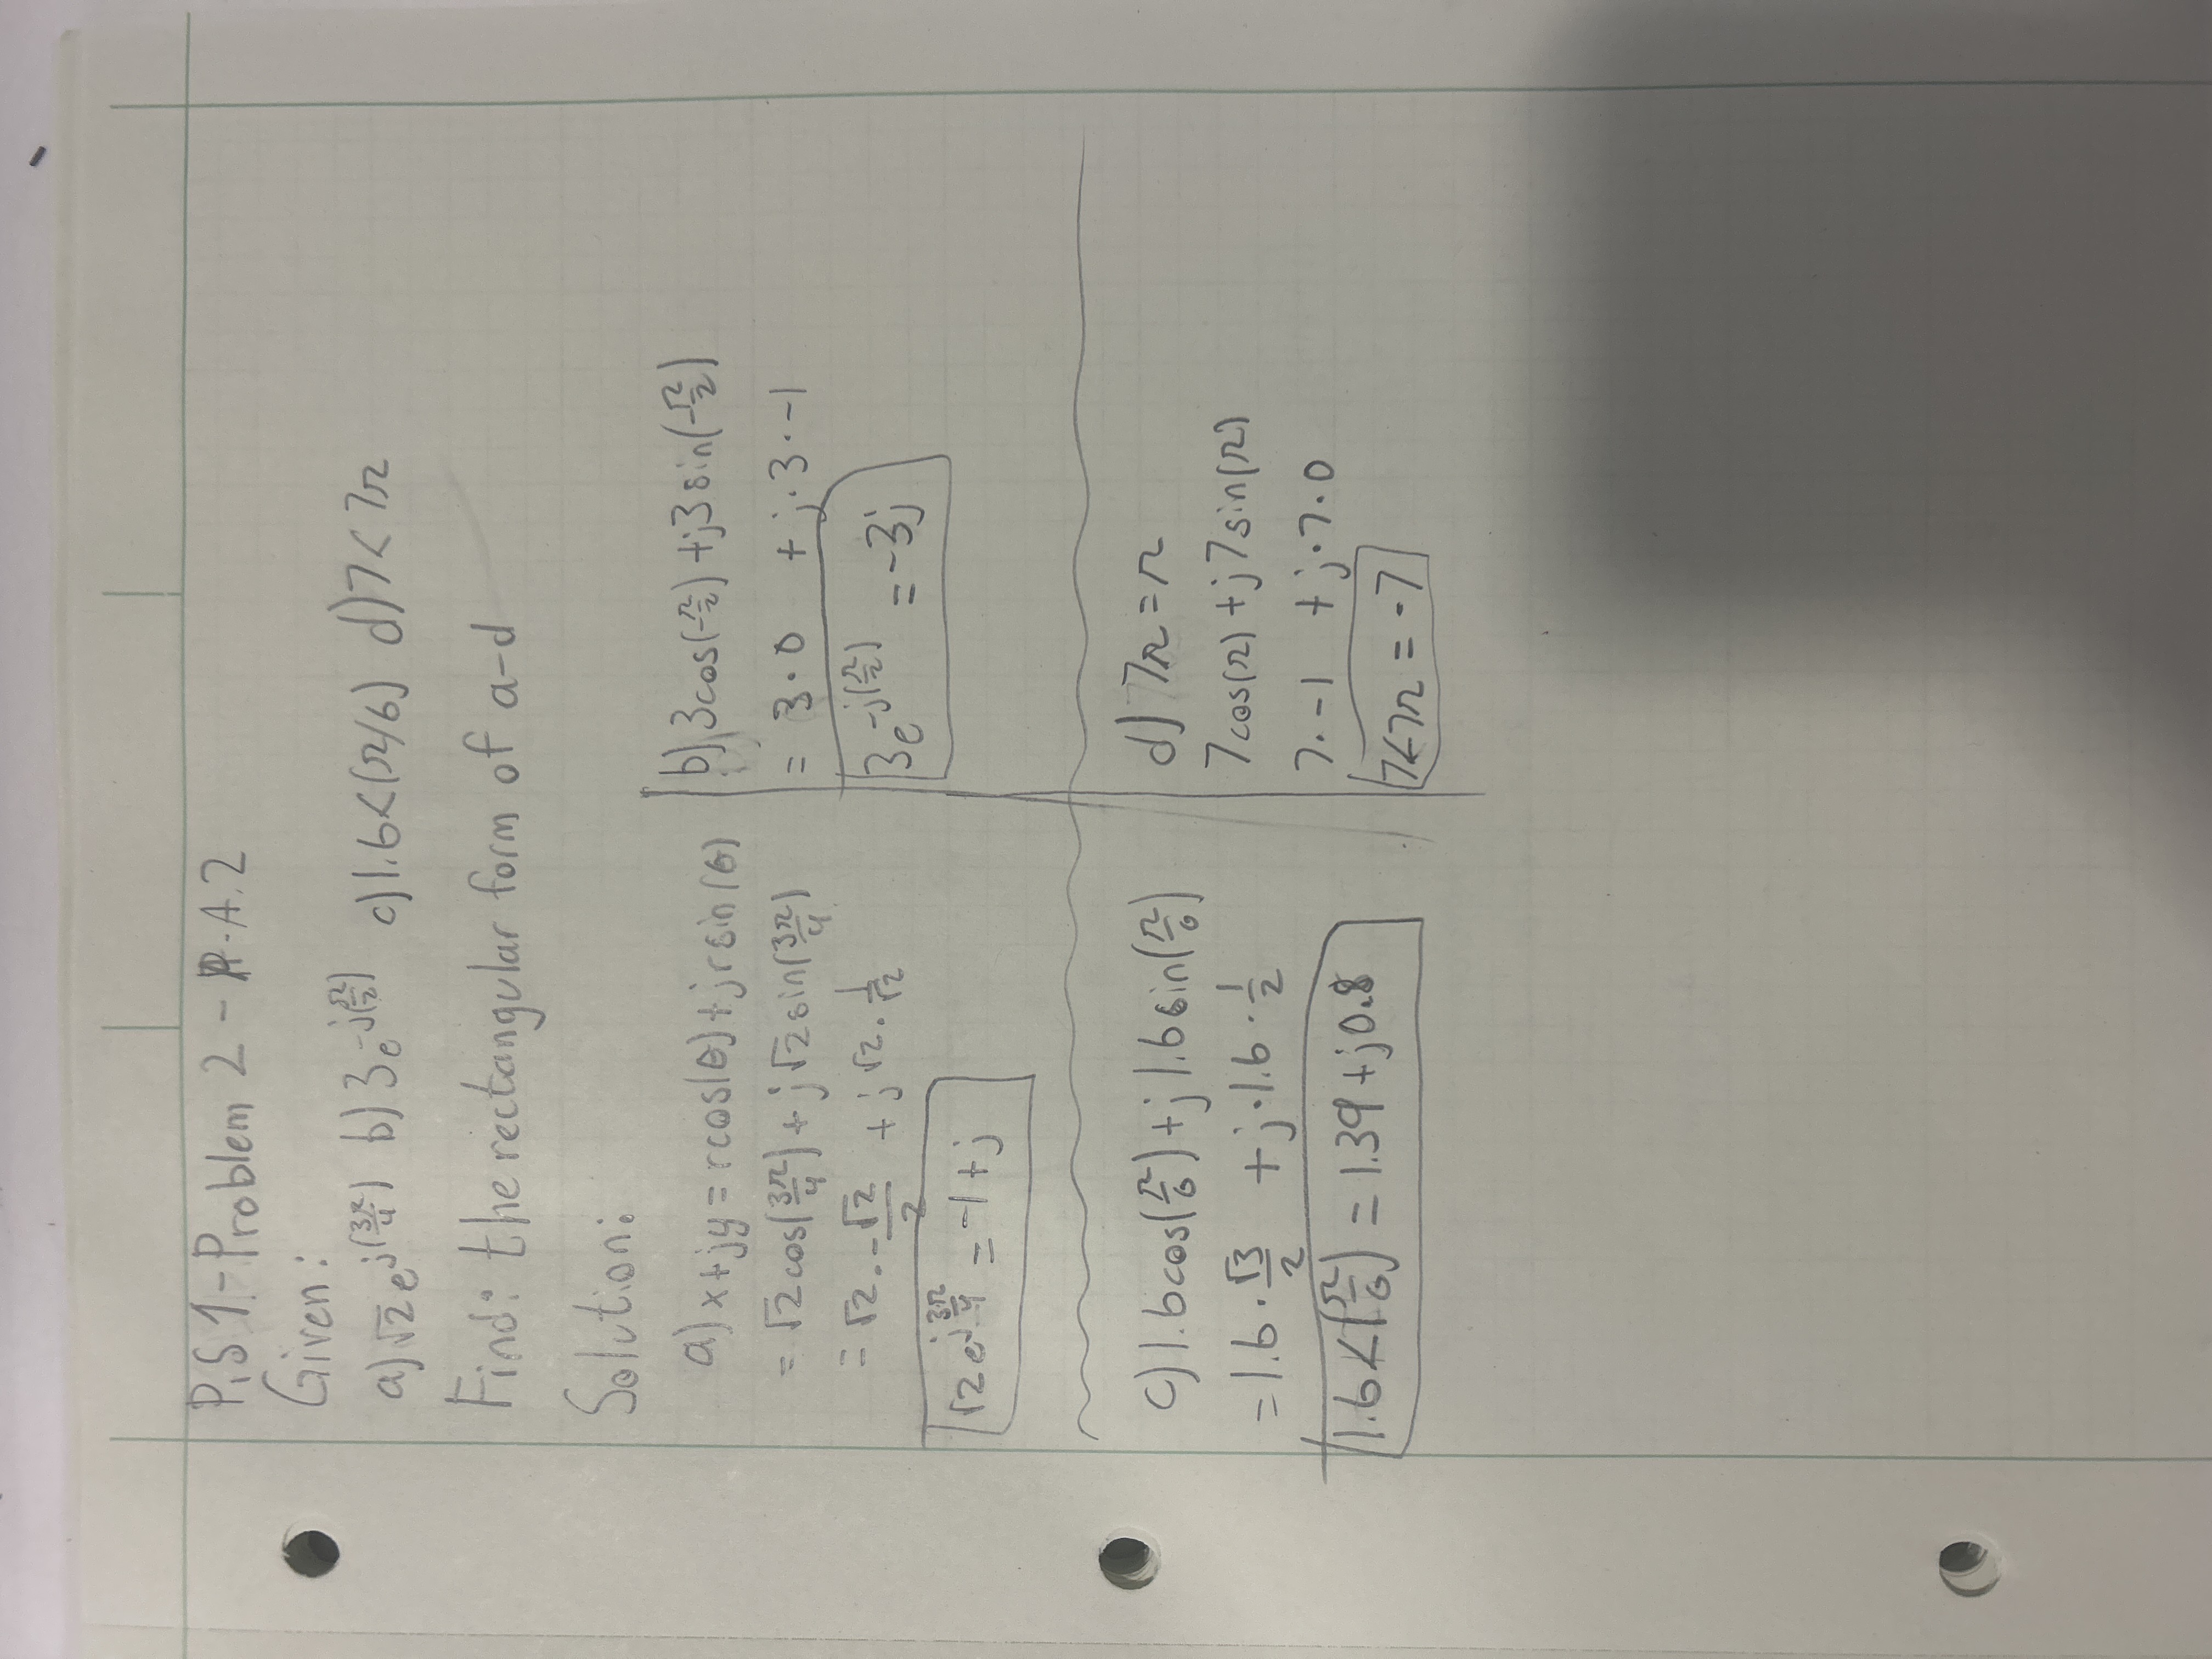 P.S 1 - Problem 2 - A.2
Given:
a) √2 e^{j(3π/4)} b) 3e^{-j(π/2)} c) 1.6<(π/6) d) 7<7π
Find: the rectangular form of a-d
Solution:
a) x+jy = rcos(θ)+jrsin(θ)
= √2cos(3π/4) + j√2sin(3π/4)
= √2·-√2/2 + j√2·1/√2
√2e^{j3π/4} = -1+j
b) 3cos(-π/2) + j3sin(-π/2)
= 3·0 + j·3·-1
3e^{-j(π/2)} = -3j
c) 1.6cos(π/6) + j1.6sin(π/6)
= 1.6·√3/2 + j·1.6·1/2
1.6<(π/6) = 1.39+j0.8
d) 7π = π
7cos(π) + j7sin(π)
7·-1 + j·7·0
7<7π = -7